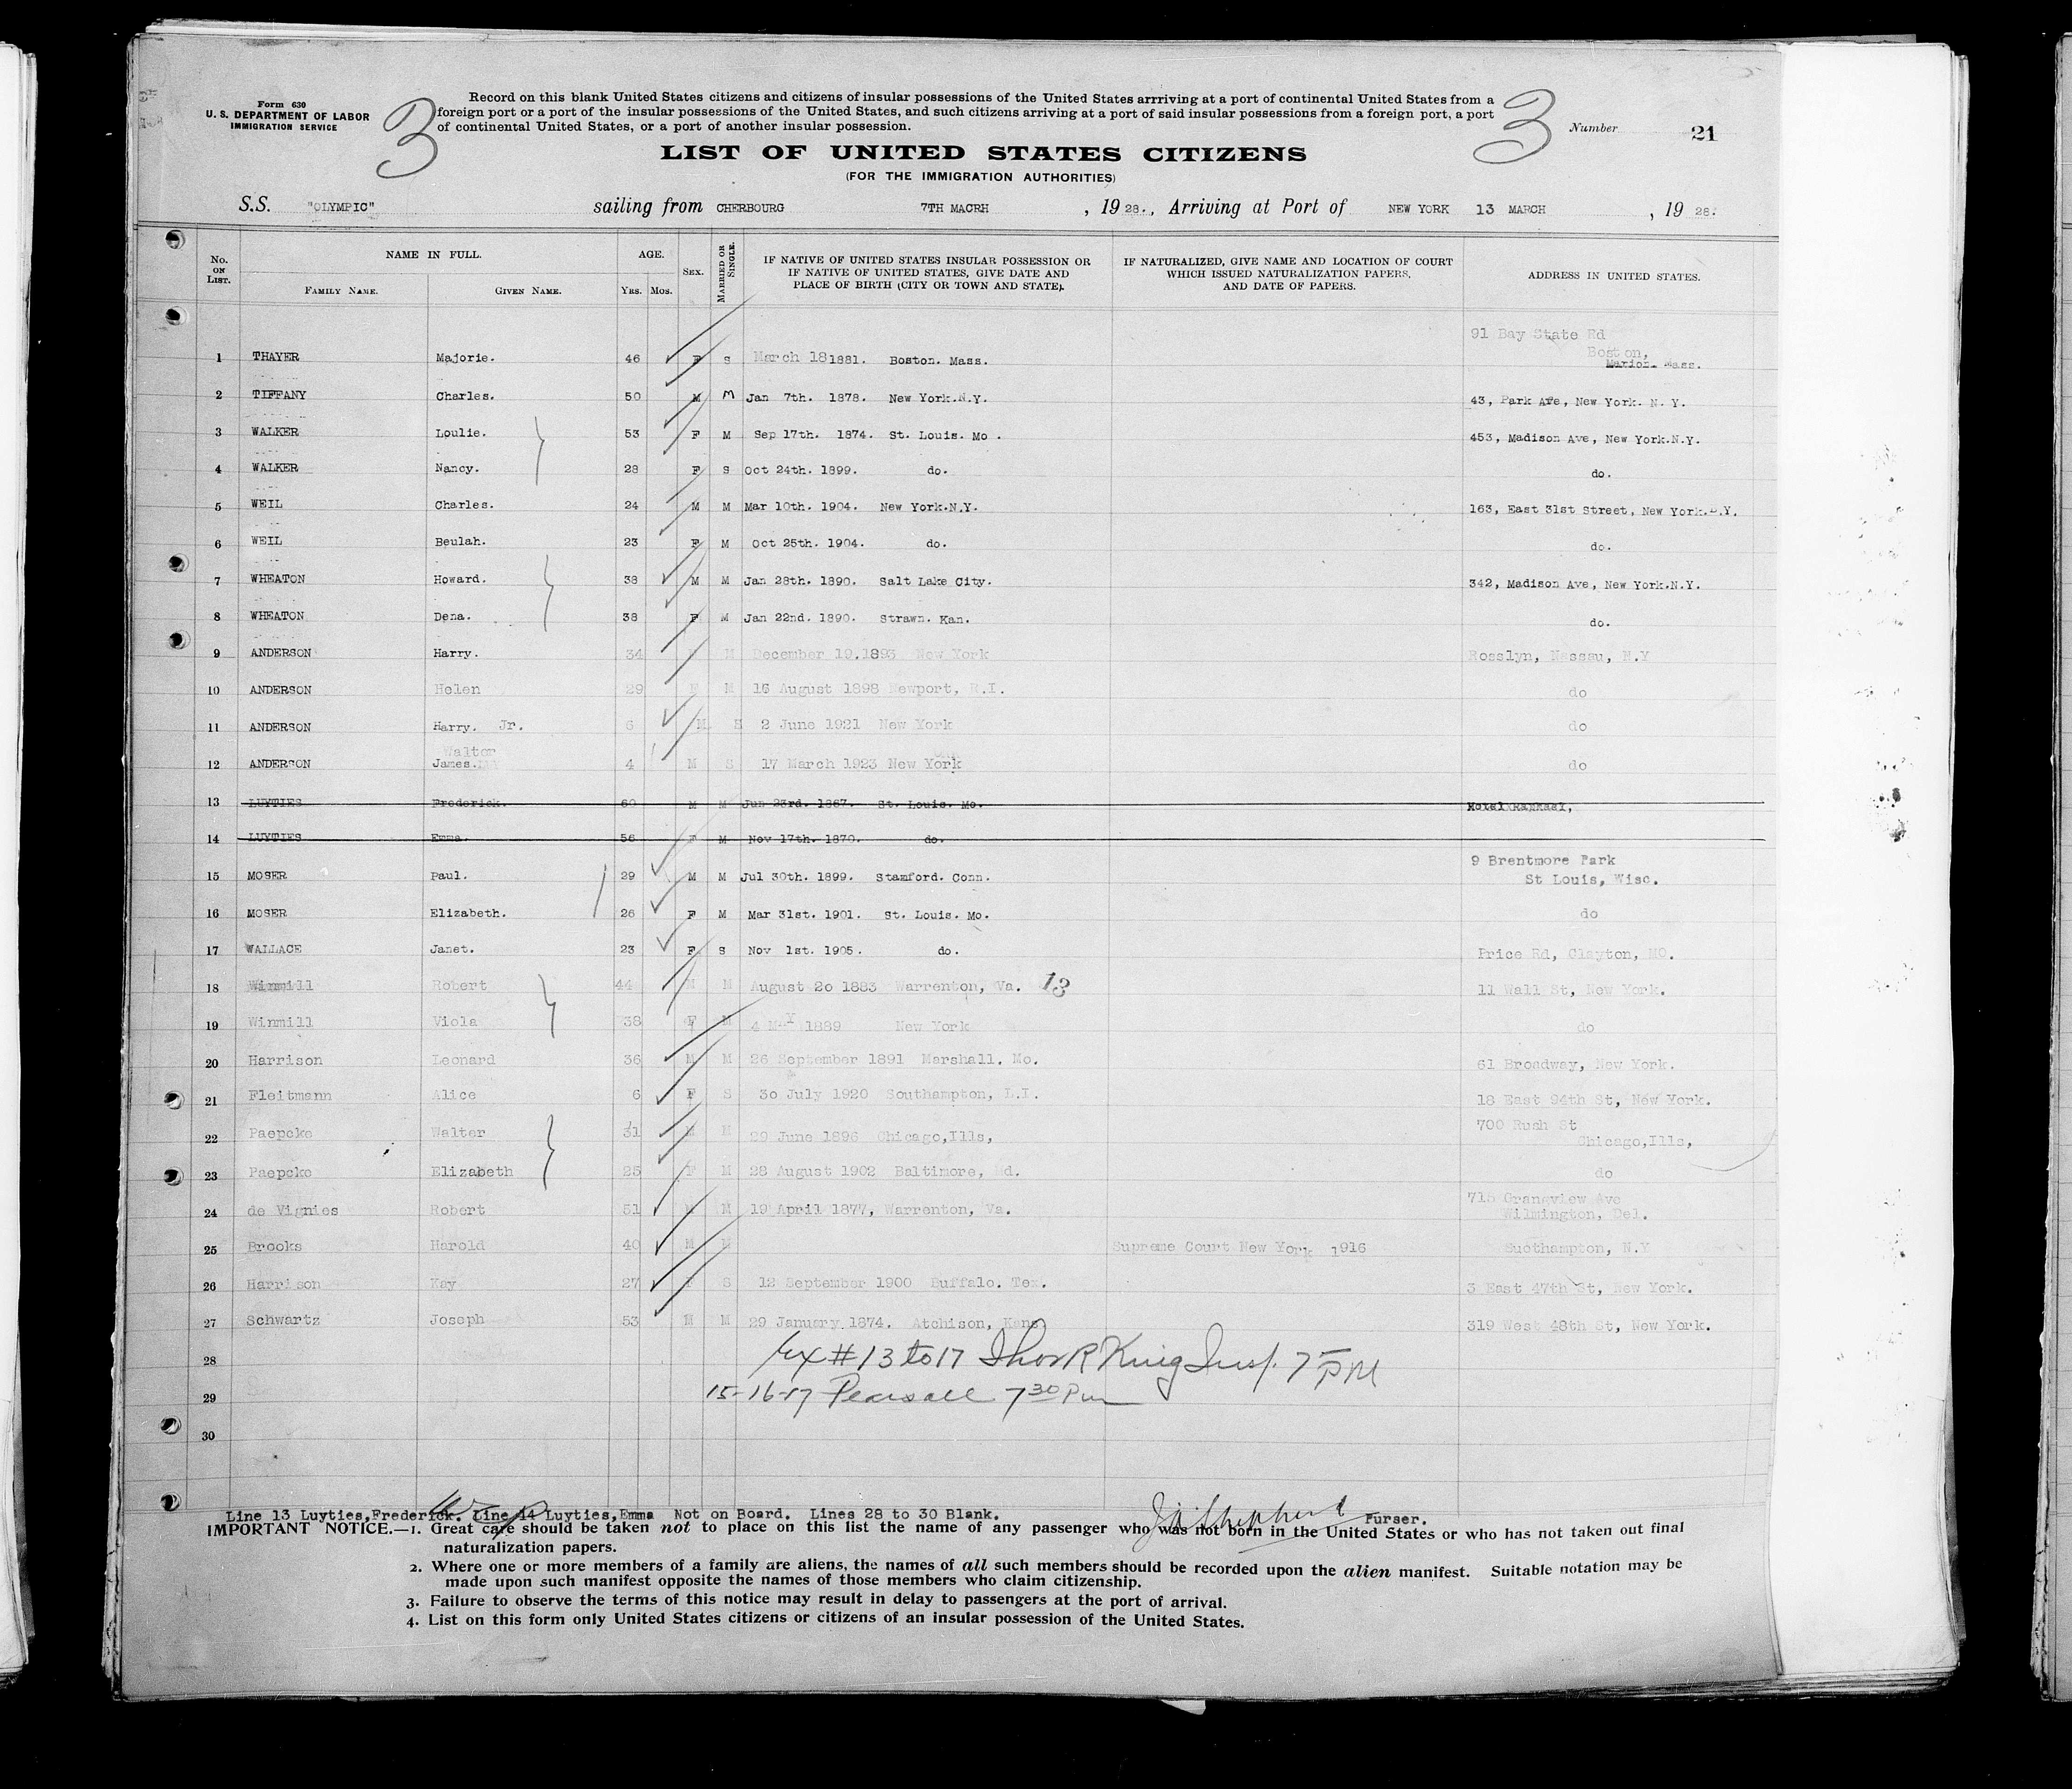 Form 630
U. S. DEPARTMENT OF LABOR
IMMIGRATION SERVICE
3
Record on this blank United States citizens and citizens of insular possessions of the United States arrriving at a port of continental United States from a
foreign port or a port of the insular possessions of the United States, and such citizens arriving at a port of said insular possessions from a foreign port, a port
of continental United States, or a port of another insular possession.
3
Number 21
LIST OF UNITED STATES CITIZENS
(FOR THE IMMIGRATION AUTHORITIES)
S.S. "OLYMPIC" sailing from CHERBOURG 7TH MACRH , 19 28., Arriving at Port of NEW YORK 13 MARCH , 19 28.
No. ON LIST. NAME IN FULL. FAMILY NAME. GIVEN NAME. AGE. YRS. MOS. SEX. MARRIED OR SINGLE. IF NATIVE OF UNITED STATES INSULAR POSSESSION OR IF NATIVE OF UNITED STATES, GIVE DATE AND PLACE OF BIRTH (CITY OR TOWN AND STATE). IF NATURALIZED, GIVE NAME AND LOCATION OF COURT WHICH ISSUED NATURALIZATION PAPERS, AND DATE OF PAPERS. ADDRESS IN UNITED STATES.
91 Bay State Rd
Boston,
1 THAYER Majorie. 46 F S March 18 1881. Boston. Mass. Marion. Mass.
2 TIFFANY Charles. 50 M M Jan 7th. 1878. New York.N.Y. 43, Park Ave, New York. N. Y.
3 WALKER Loulie. 53 F M Sep 17th. 1874. St. Louis. Mo. 453, Madison Ave, New York.N.Y.
4 WALKER Nancy. 28 F S Oct 24th. 1899. do. do.
5 WEIL Charles. 24 M M Mar 10th. 1904. New York.N.Y. 163, East 31st Street, New York.N.Y.
6 WEIL Beulah. 23 F M Oct 25th. 1904. do. do.
7 WHEATON Howard. 38 M M Jan 28th. 1890. Salt Lake City. 342, Madison Ave, New York.N.Y.
8 WHEATON Dena. 38 F M Jan 22nd. 1890. Strawn. Kan. do.
9 ANDERSON Harry. 34 M M December 19,1893 New York Rosslyn, Nassau, N.Y
10 ANDERSON Helen 29 F M 16 August 1898 Newport, R.I. do
11 ANDERSON Harry. Jr. 6 M S 2 June 1921 New York do
Walter
12 ANDERSON James. 4 M S 17 March 1923 New York do
13 LUYTIES Frederick. 60 M M Jun 23rd. 1867. St. Louis. Mo. Hotel
14 LUYTIES Emma. 56 F M Nov 17th. 1870. do.
9 Brentmore Park
15 MOSER Paul. 29 M M Jul 30th. 1899. Stamford. Conn. St Louis, Wisc.
16 MOSER Elizabeth. 26 F M Mar 31st. 1901. St. Louis. Mo. do
17 WALLACE Janet. 23 F S Nov 1st. 1905. do. Price Rd, Clayton, MO.
18 Winmill Robert 44 M M August 20 1883 Warrenton, Va. 13 11 Wall St, New York.
19 Winmill Viola 38 F M 4 May 1889 New York do
20 Harrison Leonard 36 M M 26 September 1891 Marshall. Mo. 61 Broadway, New York.
21 Fleitmann Alice 6 F S 30 July 1920 Southampton, L.I. 18 East 94th St, New York.
22 Paepcke Walter 31 M M 29 June 1896 Chicago,Ills, 700 Rush St
Chicago,Ills,
23 Paepcke Elizabeth 25 F M 28 August 1902 Baltimore, Md. do
24 de Vignies Robert 51 M M 19 April 1877, Warrenton, Va. 715 Grangview Ave
Wilmington, Del.
25 Brooks Harold 40 M M Supreme Court New York 1916 Suothampton, N.Y
26 Harrison Kay 27 F S 12 September 1900 Buffalo. Tex. 3 East 47th St, New York.
27 Schwartz Joseph 53 M M 29 January 1874. Atchison, Kans. 319 West 48th St, New York.
28 Ex # 13 to 17 Thos R King Insp. 7 PM
29 15-16-17 Pearsall 7 30 Pm
30
Line 13 Luyties,Frederick. Line 14 Luyties,Emma Not on Board. Lines 28 to 30 Blank. Purser.
IMPORTANT NOTICE.—1. Great care should be taken not to place on this list the name of any passenger who was not born in the United States or who has not taken out final
naturalization papers.
2. Where one or more members of a family are aliens, the names of all such members should be recorded upon the alien manifest. Suitable notation may be
made upon such manifest opposite the names of those members who claim citizenship.
3. Failure to observe the terms of this notice may result in delay to passengers at the port of arrival.
4. List on this form only United States citizens or citizens of an insular possession of the United States.